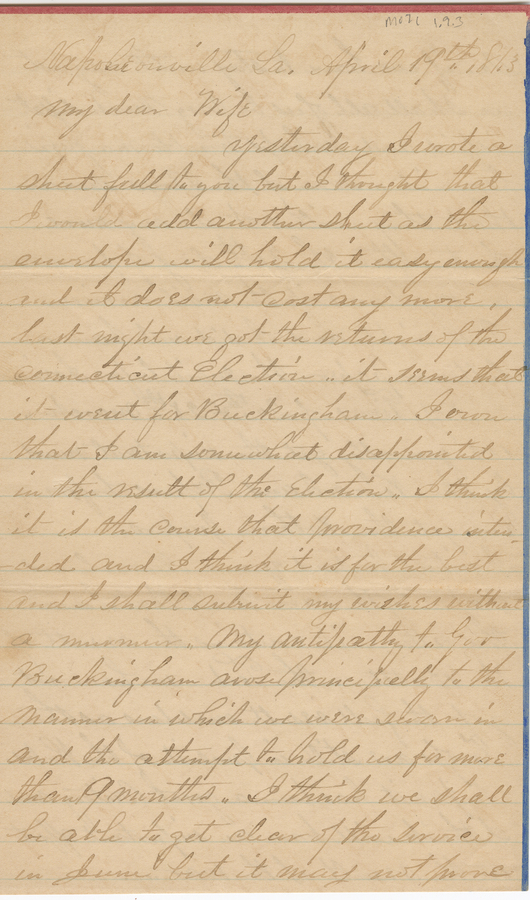 M071 1.9.3
Napoleonville La. April 19th, 1863
My dear Wife
Yesterday I wrote a
sheet full to you but I thought that
I would add another sheet as the
envelope will hold it easy enough
and it does not cost any more.
last night we got the returns of the
Connecticut Election .. it seems that
it went for Buckingham. I own
that I am somewhat disappointed
in the result of the Election .. I think
it is the course that providence inten
-ded and I think it is for the best
and I shall submit my wishes without
a murmur .. My antipathy to Gov
Buckingham arose principally to the
manner in which we were sworn in
and the attempt to hold us for more
than 9 months .. I think we shall
be able to get clear of the service
in June but it may not prove